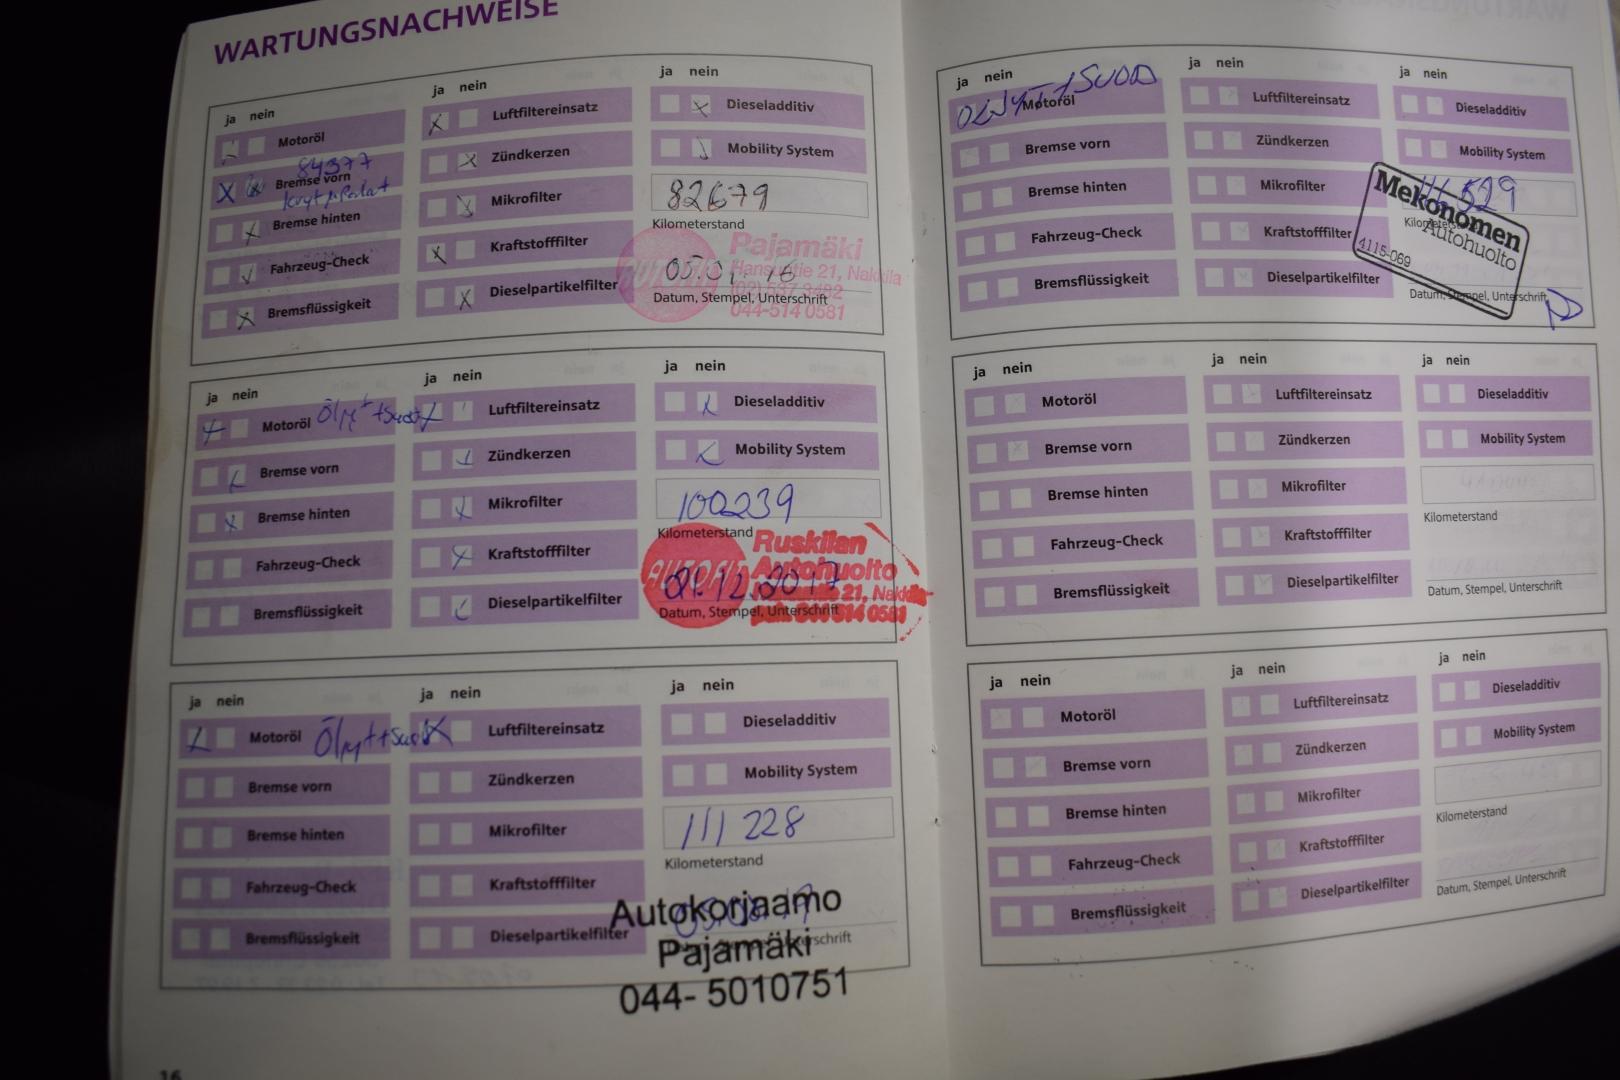 WARTUNGSNACHWEISE
ja nein
Motoröl
84377
Bremse vorn
Bremse hinten
Fahrzeug-Check
Bremsflüssigkeit
ja nein
Luftfiltereinsatz
Zündkerzen
Mikrofilter
Kraftstofffilter
Dieselpartikelfilter
ja nein
Dieseladditiv
Mobility System
82679
Kilometerstand
Pajamäki
Hansuntie 21, Nakkila
044-514 0581
Datum, Stempel, Unterschrift
ja nein
Motoröl
Bremse vorn
Bremse hinten
Fahrzeug-Check
Bremsflüssigkeit
ja nein
Luftfiltereinsatz
Zündkerzen
Mikrofilter
Kraftstofffilter
Dieselpartikelfilter
ja nein
Dieseladditiv
Mobility System
100239
Kilometerstand
Ruskilan
Autohuolto
Datum, Stempel, Unterschrift
ja nein
Motoröl
Bremse vorn
Bremse hinten
Fahrzeug-Check
Bremsflüssigkeit
ja nein
Luftfiltereinsatz
Zündkerzen
Mikrofilter
Kraftstofffilter
Dieselpartikelfilter
ja nein
Dieseladditiv
Mobility System
111 228
Kilometerstand
Autokorjaamo
Pajamäki
044- 5010751
16
ja nein
Motoröl
Bremse vorn
Bremse hinten
Fahrzeug-Check
Bremsflüssigkeit
ja nein
Luftfiltereinsatz
Zündkerzen
Mikrofilter
Kraftstofffilter
Dieselpartikelfilter
ja nein
Dieseladditiv
Mobility System
Mekonomen
Autohuolto
4115-069
Datum, Stempel, Unterschrift
ja nein
Motoröl
Bremse vorn
Bremse hinten
Fahrzeug-Check
Bremsflüssigkeit
ja nein
Luftfiltereinsatz
Zündkerzen
Mikrofilter
Kraftstofffilter
Dieselpartikelfilter
ja nein
Dieseladditiv
Mobility System
Kilometerstand
Datum, Stempel, Unterschrift
ja nein
Motoröl
Bremse vorn
Bremse hinten
Fahrzeug-Check
Bremsflüssigkeit
ja nein
Luftfiltereinsatz
Zündkerzen
Mikrofilter
Kraftstofffilter
Dieselpartikelfilter
ja nein
Dieseladditiv
Mobility System
Kilometerstand
Datum, Stempel, Unterschrift